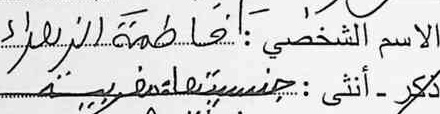 الاسم الشخصي : فاطمة الزهراء
ذكر - أنثى : جنسيتها مغربية